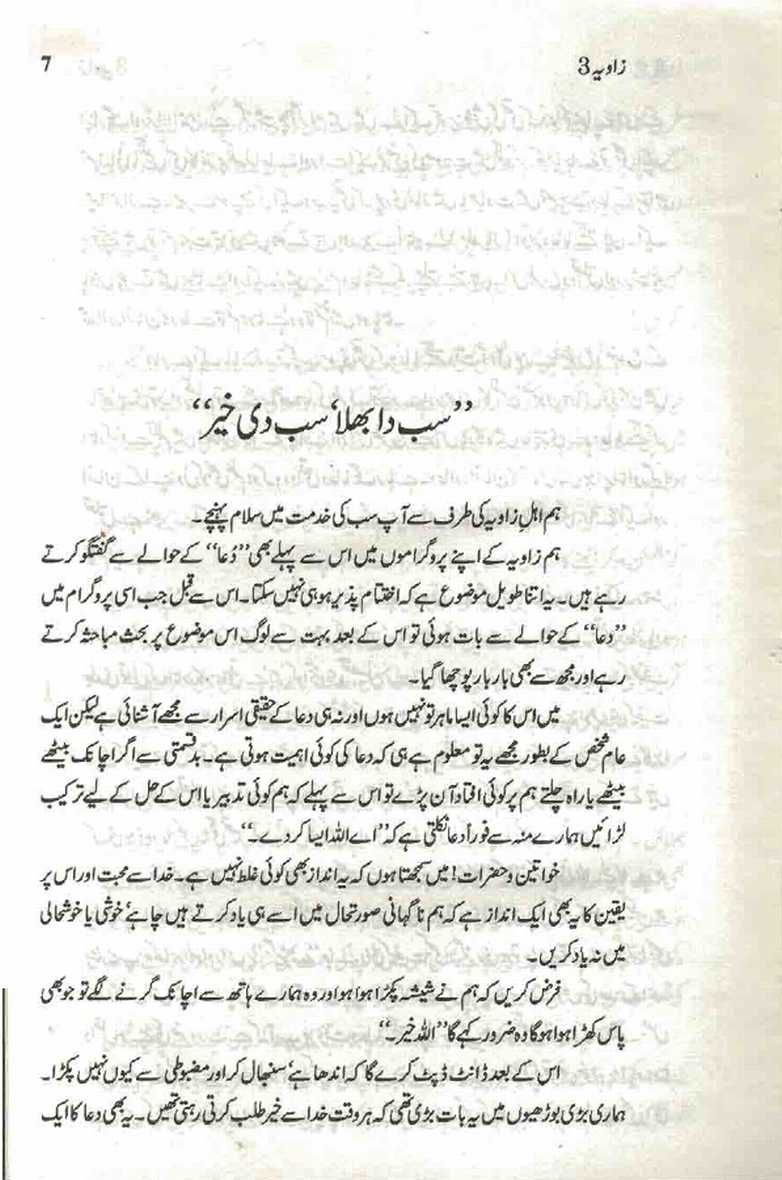 زاویہ 3 7
”سب دا بھلا‘ سب دی خیر“
ہم اہلِ زاویہ کی طرف سے آپ سب کی خدمت میں سلام پہنچے۔
ہم زاویہ کے اپنے پروگراموں میں اس سے پہلے بھی ”دُعا“ کے حوالے سے گفتگو کرتے
رہے ہیں۔ یہ اتنا طویل موضوع ہے کہ اختتام پذیر ہو ہی نہیں سکتا۔ اس سے قبل جب اسی پروگرام میں
”دعا“ کے حوالے سے بات ہوئی تو اس کے بعد بہت سے لوگ اس موضوع پر بحث مباحثہ کرتے
رہے اور مجھ سے بھی بار بار پوچھا گیا۔
میں اس کا کوئی ایسا ماہر تو نہیں ہوں اور نہ ہی دعا کے حقیقی اسرار سے مجھے آشنائی ہے لیکن ایک
عام شخص کے بطور مجھے یہ تو معلوم ہے ہی کہ دعا کی کوئی اہمیت ہوتی ہے۔ بدقسمتی سے اگر اچانک بیٹھے
بیٹھے یا راہ چلتے ہم پر کوئی افتاد آن پڑے تو اس سے پہلے کہ ہم کوئی تدبیر یا اس کے حل کے لیے ترکیب
لڑائیں ہمارے منہ سے فوراً دعا نکلتی ہے کہ ”اے اللہ ایسا کر دے۔“
خواتین و حضرات! میں سمجھتا ہوں کہ یہ انداز بھی کوئی غلط نہیں ہے۔ خدا سے محبت اور اس پر
یقین کا یہ بھی ایک انداز ہے کہ ہم ناگہانی صورتحال میں اسے ہی یاد کرتے ہیں چاہے‘ خوشی یا خوشحالی
میں نہ یاد کریں۔
فرض کریں کہ ہم نے شیشہ پکڑا ہوا ہو اور وہ ہمارے ہاتھ سے اچانک گرنے لگے تو جو بھی
پاس کھڑا ہوا ہوگا وہ ضرور کہے گا ”اللہ خیر۔“
اس کے بعد ڈانٹ ڈپٹ کرے گا کہ اندھا ہے‘ سنبھال کر اور مضبوطی سے کیوں نہیں پکڑا۔
ہماری بڑی بوڑھیوں میں یہ بات بڑی تھی کہ ہر وقت خدا سے خیر طلب کرتی رہتی تھیں۔ یہ بھی دعا کا ایک